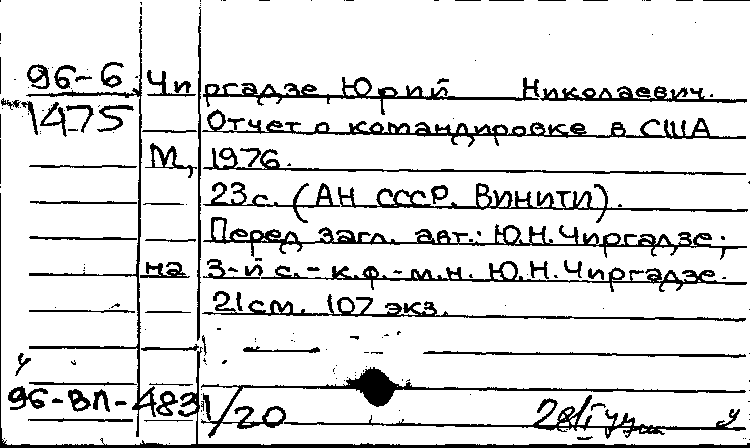 96-6 Чиргадзе, Юрий Николаевич.
1475 Отчет о командировке в США
М, 1976.
23с. (АН СССР. ВИНИТИ).
Перед загл. авт.: Ю.Н. Чиргадзе;
на 3-й с. - к.ф.-м.н. Ю.Н. Чиргадзе.
21см. 107 экз.
у
96-ВЛ-4831/20
у